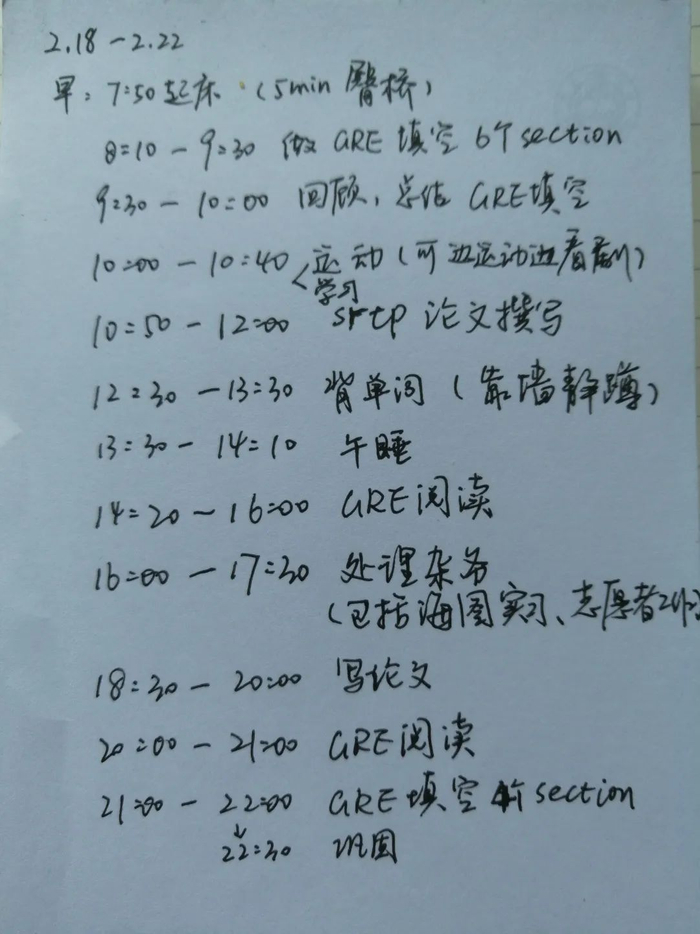 2.18 - 2.22
早: 7:50起床 (5min 臀桥)
8:10 - 9:30 做 GRE 填空 6个section
9:30 - 10:00 回顾, 总结 GRE填空
10:00 - 10:40 运动 (可边运动边看剧)
学习
10:50 - 12:00 srtp 论文撰写
12:30 - 13:30 背单词 (靠墙静蹲)
13:30 - 14:10 午睡
14:20 - 16:00 GRE阅读
16:00 - 17:30 处理杂务
(包括海图实习、志愿者工作)
18:30 - 20:00 写论文
20:00 - 21:00 GRE阅读
21:00 - 22:00 GRE填空 4个section
22:30 巩固